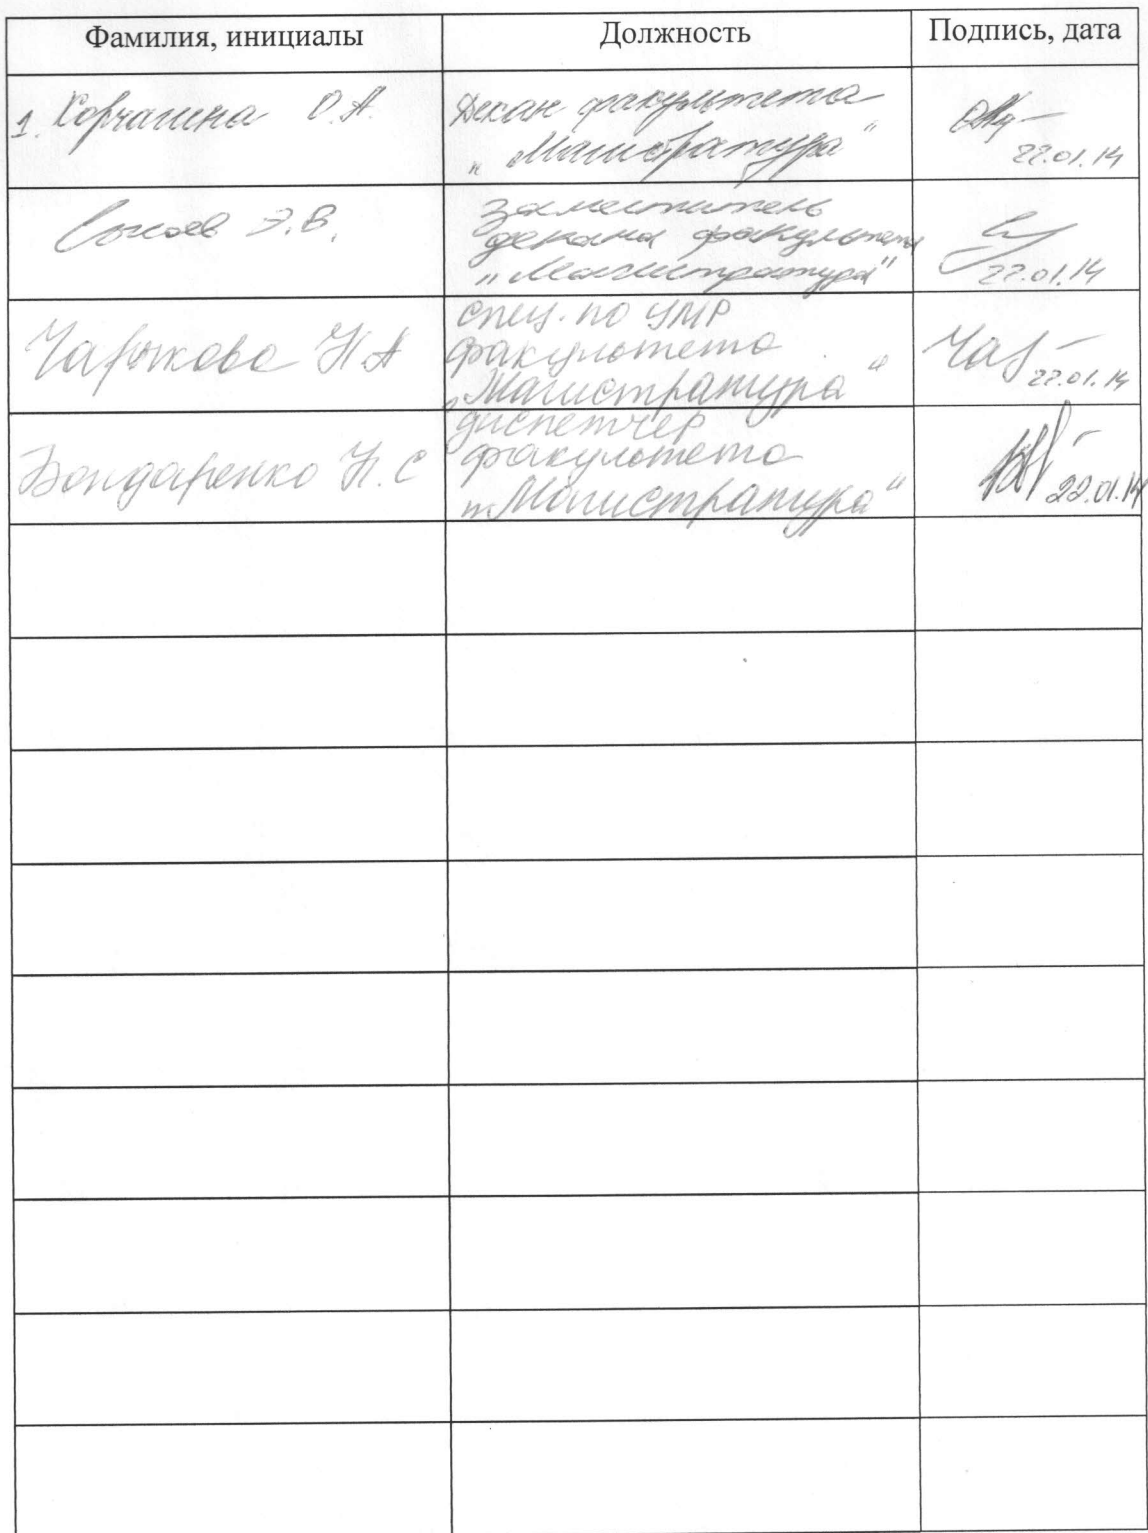 Фамилия, инициалы Должность Подпись, дата
1. Корчагина О.А. Декан факультета
„Магистратура“ 22.01.14
Э.В. заместитель
декана факультета
„Магистратура“ 22.01.14
Чарыкова Н.А спец. по УМР
факультета
„Магистратура“ Чар 22.01.14
Бондаренко Н.С диспетчер
факультета
„Магистратура“ 22.01.14